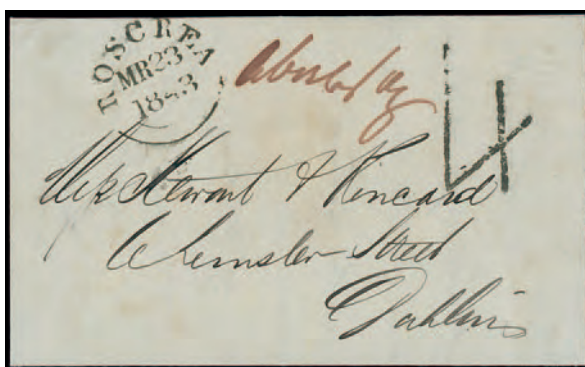 ROSCREA
MR 23
1843
4
Messrs Stewart & Kincaid
Leinster Street
Dublin